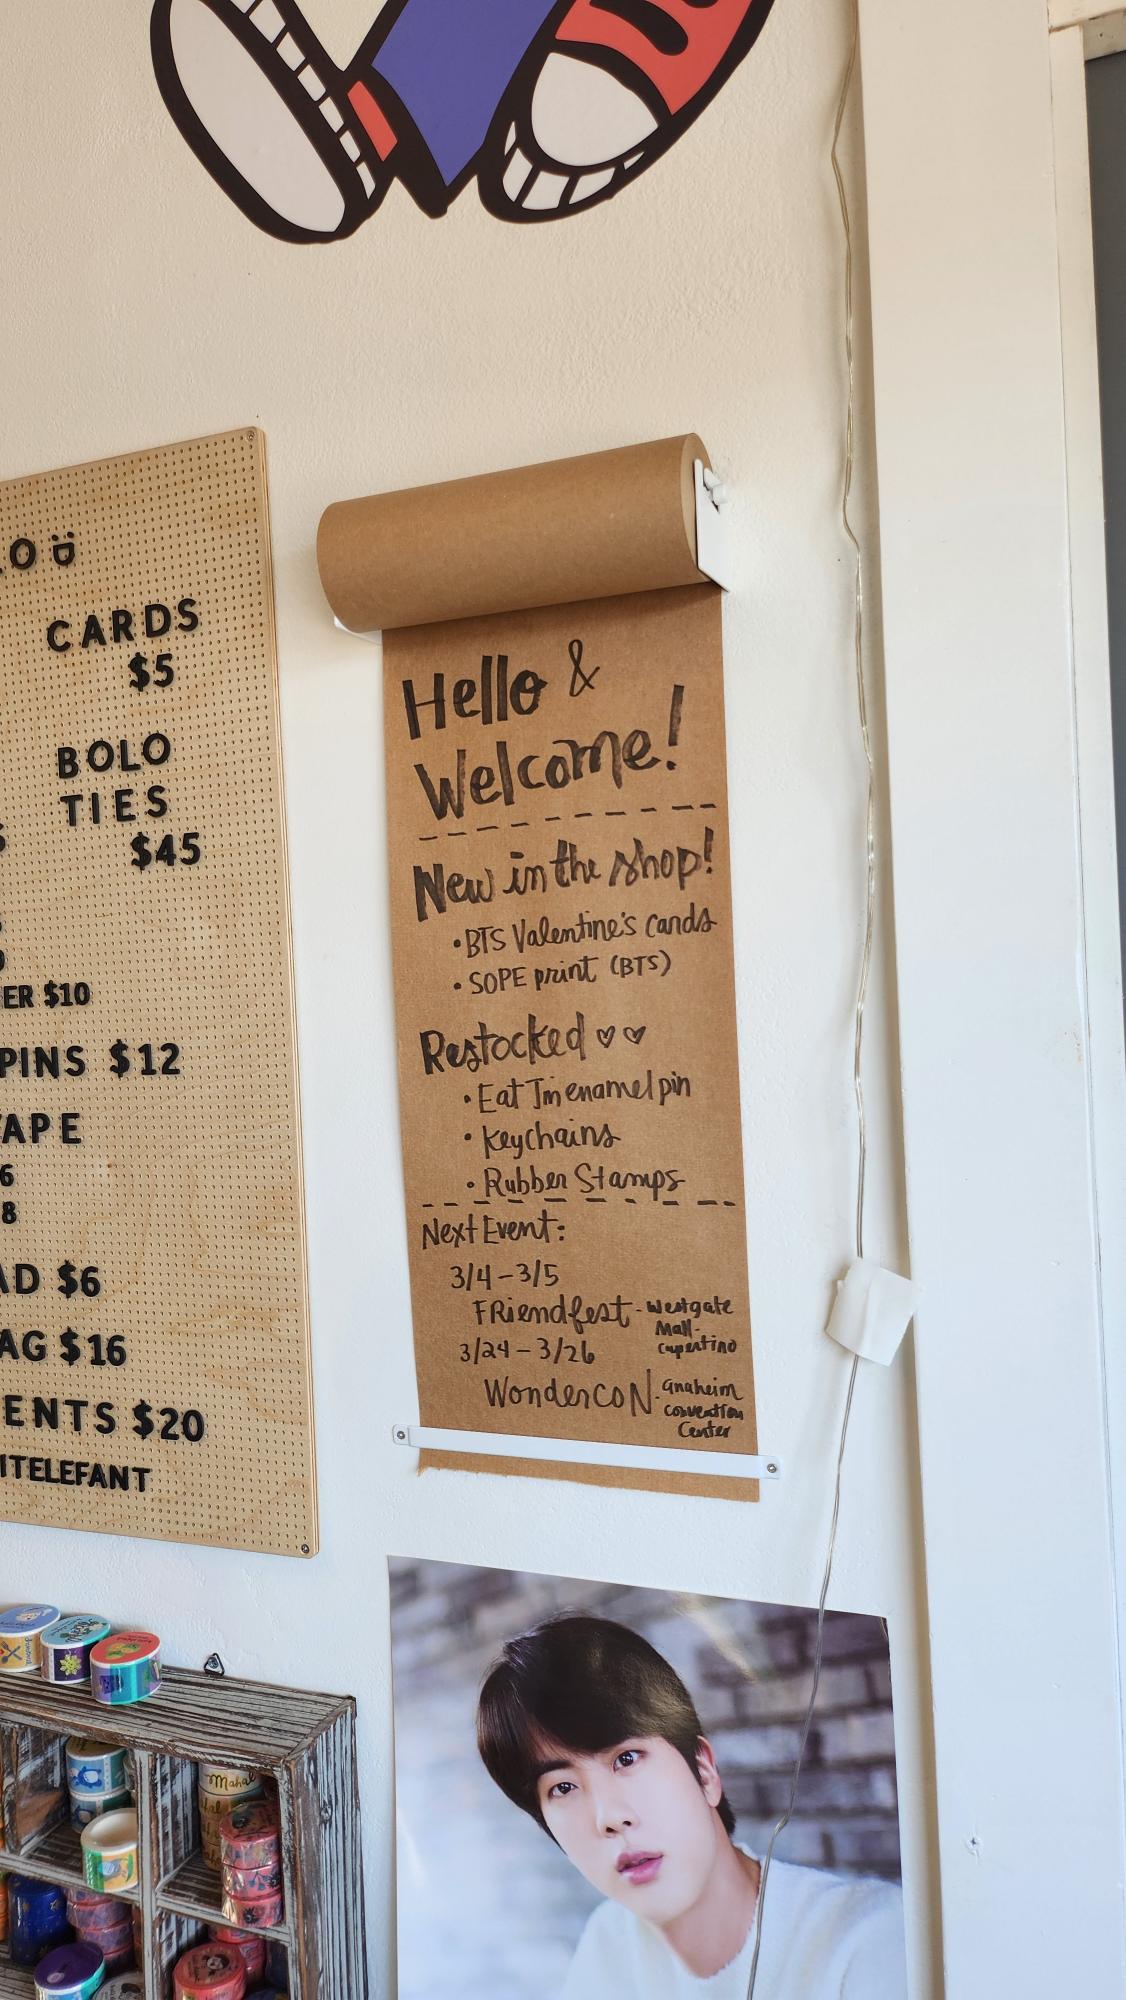 LO
CARDS
$5
BOLO
TIES
$45
ER $10
PINS $12
TAPE
6
8
AD $6
AG $16
ENTS $20
ITELEFANT
Hello &
Welcome!
New in the shop!
• BTS Valentine's cards
• SOPE print (BTS)
Restocked ♡♡
• Eat Jin enamel pin
• Keychains
• Rubber Stamps
Next Event:
3/4 - 3/5
FRiendfest - Westgate
Mall -
Cupertino
3/24 - 3/26
WonderCoN - Anaheim
Convention
Center
Mahal